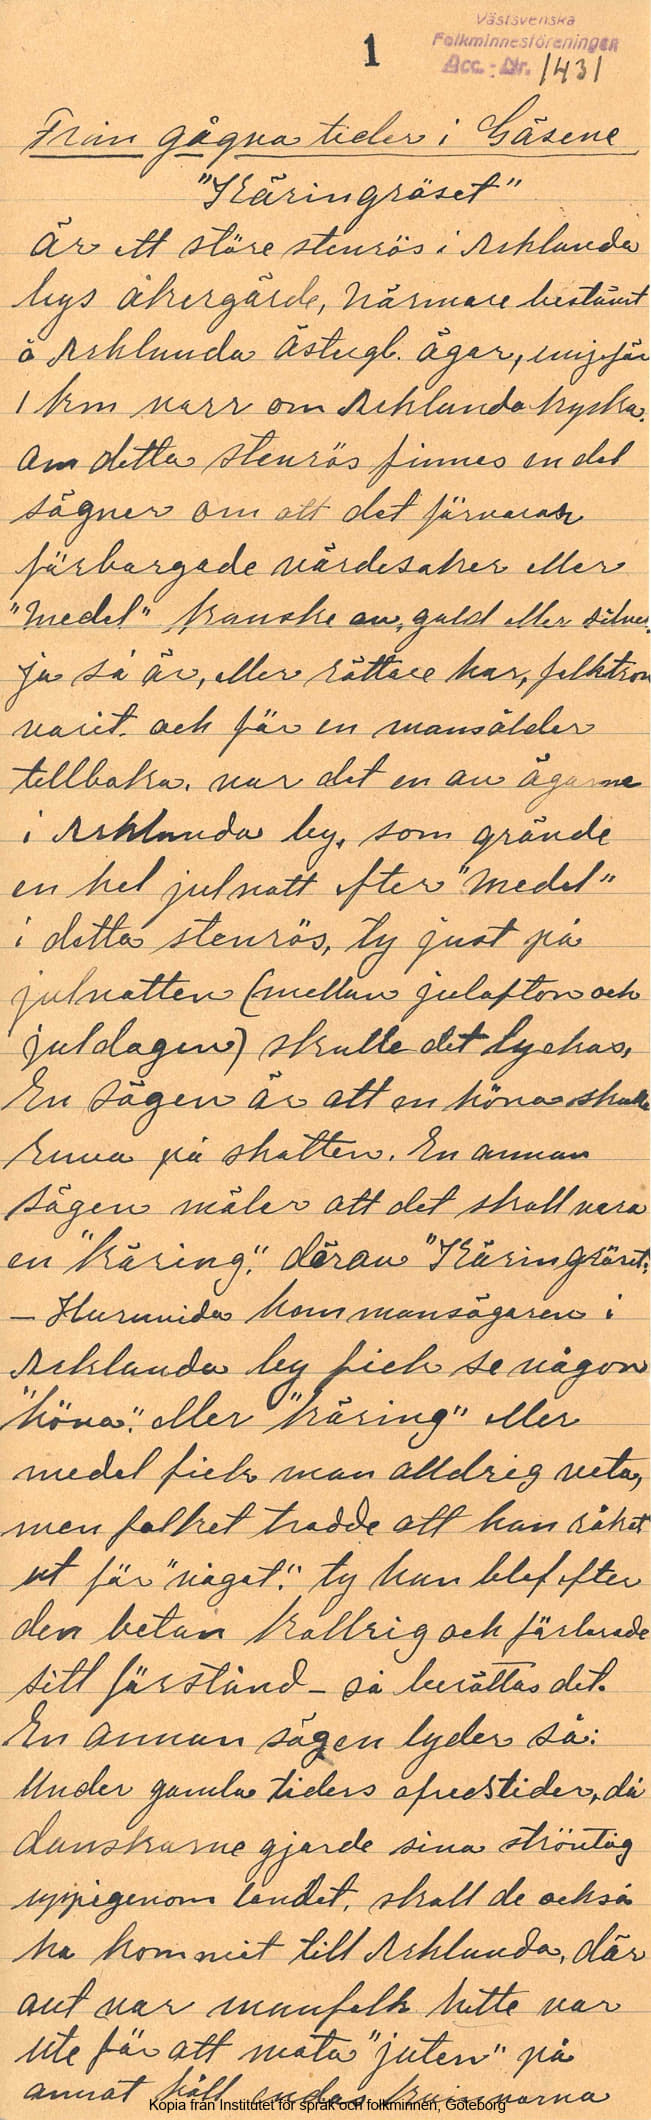 1
Västsvenska
Folkminnesföreningen
Acc. - Nr. 1431
Från gågna tider i Gäsene
"Käringröset"
är ett störe stenrös i Asklanda
bys åkergärde, närmare bestämt
å Asklanda Östregl. ägor, ungefär
1 km norr om Asklanda kyrka.
Om detta stenrös finnes en del
sägner om att det förvaras
förborgade värdesaker eller
"medel" kanske av, guld eller silver.
ja så är, eller rättare har, folktron
varit. och för en mansålder
tillbaka. var det en av ägarne
i Asklanda by, som grävde
en hel julnatt efter "medel"
i detta stenrös, ty just på
julnatten (mellan julafton och
juldagen) skulle det lyckas,
En sägen är att en höna skulle
ruva på skatten. En annan
sägen mäler att det skall vara
en "käring", därav "Käringröset".
- Huruvida hemmansägaren i
Asklanda by fick se någon
"höna" eller "käring" eller
medel fick man alldrig veta,
men folket trodde att han råkat
ut för "något". ty han blef efter
den betan kollrig och förlorade
sitt förstånd - så berättas det.
En annan sägen lyder så:
Under gamla tiders ofredstider, då
danskarne gjorde sina ströväg
uppigenom landet, skall de också
ha kommit till Asklanda, där
allt var manfolk hette var
ute för att möta "juten" på
annat håll endast kvinnorna
Kopia från Institutet för språk och folkminnen, Göteborg